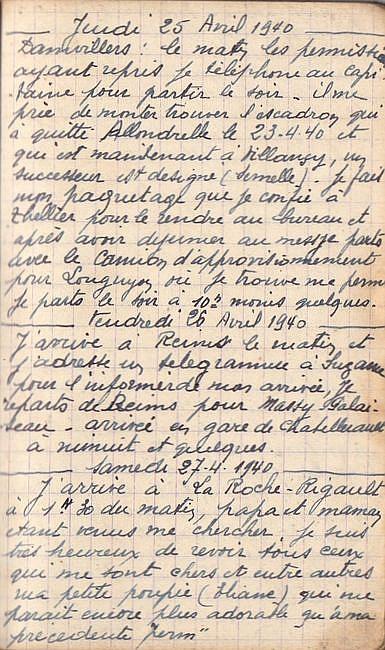 Jeudi 25 Avril 1940
Damvillers : le matin les permissions
ayant repris je téléphone au capi-
taine pour partir le soir - il me
prie de monter trouver l'escadron qui
a quitté Allondrelle le 23-4-40 et
qui est maintenant à Villancy, un
successeur est désigné (Semelle). Je fais
mon paquetage que je confie à
Thellier pour le rendre au bureau et
après avoir déjeuner au mess je parts
avec le camion d'approvisionnement
pour Longuyon où je trouve ma perm
Je parts le soir à 10h moins quelques.
Vendredi 26 Avril 1940
J'arrive à Reims le matin et
j'adresse un télégramme à Suzanne
pour l'informer de mon arrivée, Je
reparts de Reims pour Massy-Palai-
seau - arrivée en gare de Chatellerault
à minuit et quelques.
Samedi 27-4-1940
J'arrive à La Roche-Rigault
à 1h30 du matin, papa et maman
étant venus me chercher. Je suis
très heureux de revoir tous ceux
qui me sont chers et entre autres
ma petite poupée (Eliane) qui me
parait encore plus adorable qu'à ma
précédente "perm"